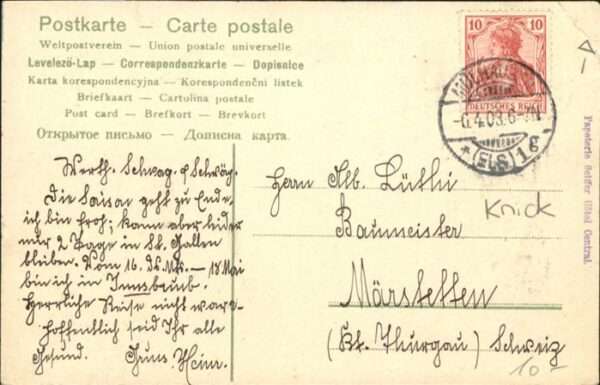 Postkarte — Carte postale
Weltpostverein — Union postale universelle
Levelező-Lap — Correspondenzkarte — Dopisnice
Karta korespondencyjna — Korespondenční listek
Briefkaart — Cartolina postale
Post card — Brefkort — Brevkort
Открытое письмо — Дописна карта.
10 10
DEUTSCHES REICH
-6.4.09.6-7N
(ELS) 1g
Papeterie Seiffer (Hôtel Central.
Werth. Schwag. & Schwäg.
Die Saison geht zu Ende
ich bin froh; kann aber leider
nur 2 Tage in St. Gallen
bleiben. Vom 16. ds. Mts. — 18 Mai
bin ich in Innsbruck.
Herrliche Reise nicht wahr-
Hoffentlich seid Ihr alle
Gesund. Gruss Heinr.
Herrn Alb. Lüthi
Baumeister
Märstetten
(Kt. Thurgau) Schweiz
Knick
10 -